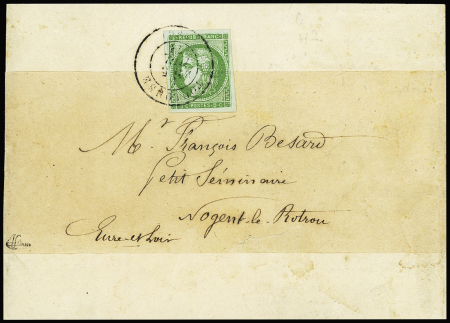 REPUB. FRANC.
Mr. François Besard
Petit Séminaire
Nogent-le-Rotrou
Eure-et-Loir